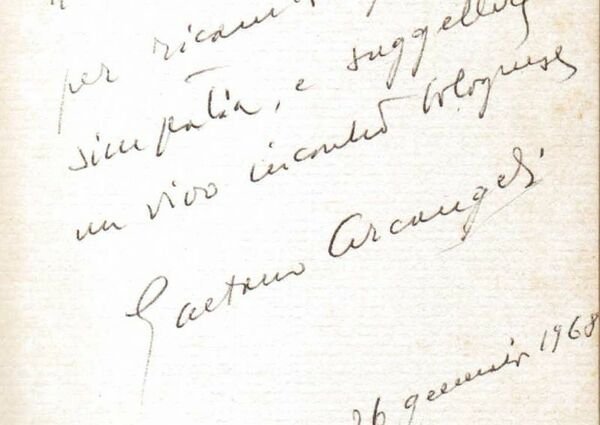 per ricam
simpatia, e suggellar
un vivo incontro bolognese
Gaetano Arcangeli
26 gennaio 1968